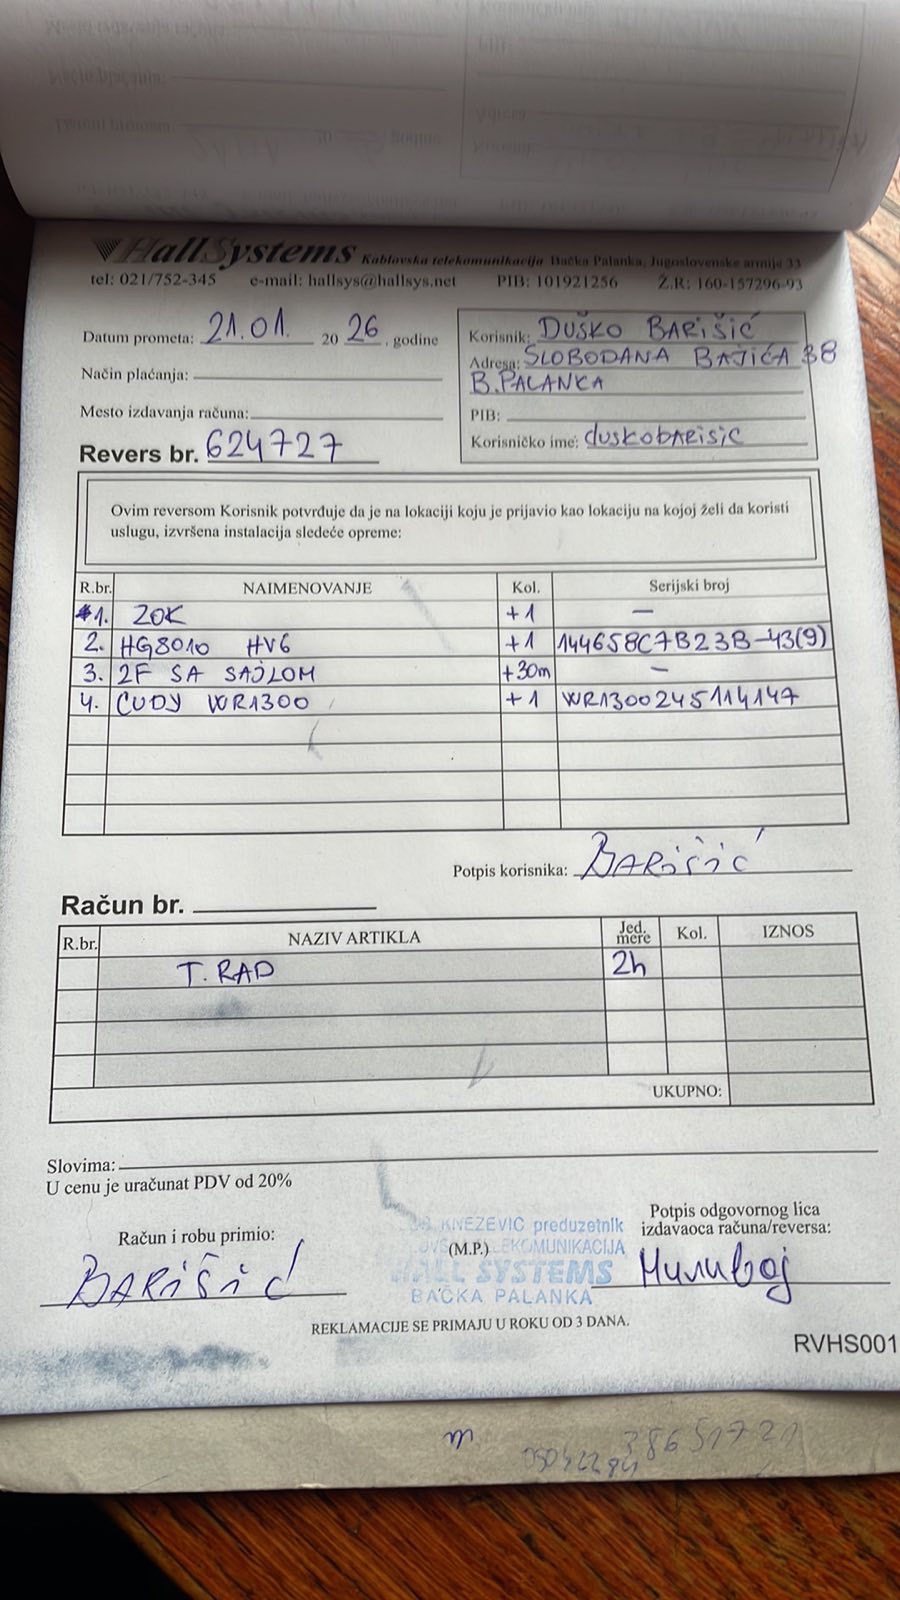 HallSystems Kablovska telekomunikacija Bačka Palanka, Jugoslovenske armije 33
tel: 021/752-345 e-mail: hallsys@hallsys.net PIB: 101921256 Ž.R: 160-157296-93
Datum prometa: 21.01. 20 26. godine
Način plaćanja:
Mesto izdavanja računa:
Revers br. 624727
Korisnik: DUŠKO BARIŠIĆ
Adresa: SLOBODANA BAJIĆA 38
B.PALANKA
PIB:
Korisničko ime: duskobarisic
Ovim reversom Korisnik potvrđuje da je na lokaciji koju je prijavio kao lokaciju na kojoj želi da koristi
uslugu, izvršena instalacija sledeće opreme:
R.br. NAIMENOVANJE Kol. Serijski broj
1. ZOK +1 —
2. HG8010 HV6 +1 144658C7B23B-43(9)
3. 2F SA SAJLOM +30m —
4. CUDY WR1300 +1 WR1300245114147
Potpis korisnika: BARIŠIĆ
Račun br.
R.br. NAZIV ARTIKLA Jed. mere Kol. IZNOS
T. RAD 2h
UKUPNO:
Slovima:
U cenu je uračunat PDV od 20%
Račun i robu primio:
BARIŠIĆ
KNEZEVIC preduzetnik
(M.P.) EKOMUNIKACIJA
HALL SYSTEMS
BAČKA PALANKA
Potpis odgovornog lica
izdavaoca računa/reversa:
Миливој
REKLAMACIJE SE PRIMAJU U ROKU OD 3 DANA.
RVHS001